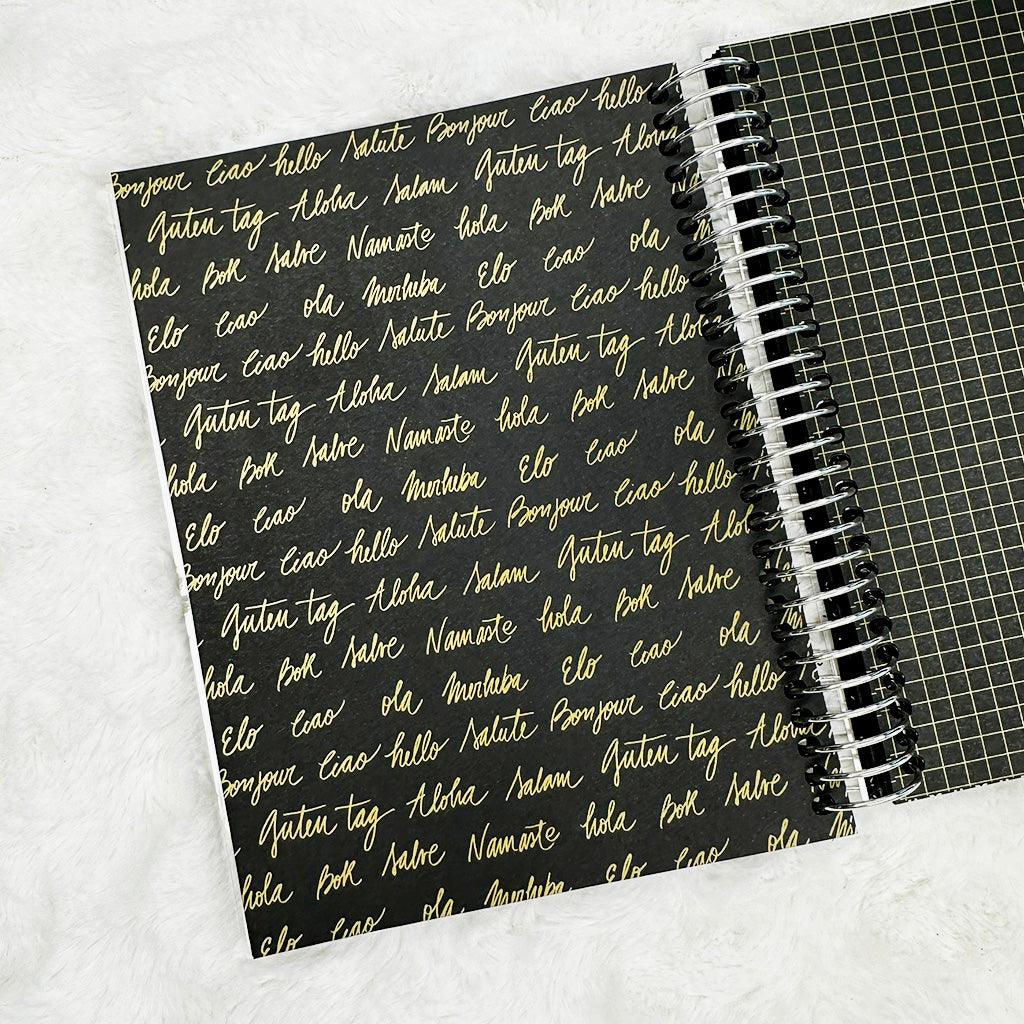 Bonjour Ciao hello Salute Bonjour Ciao hello
Guten tag Aloha Salam Guten tag Aloha
hola Bok Salve Namaste hola Bok Salve Na
Elo Ciao ola Merheba Elo Ciao ola
Bonjour Ciao hello Salute Bonjour Ciao hello
Guten tag Aloha Salam Guten tag Aloha
hola Bok Salve Namaste hola Bok Salve Na
Elo Ciao ola Merheba Elo Ciao ola
Bonjour Ciao hello Salute Bonjour Ciao hello
Guten tag Aloha Salam Guten tag Aloha
hola Bok Salve Namaste hola Bok Salve
Elo Ciao ola Merheba Elo Ciao ola
Bonjour Ciao hello Salute Bonjour Ciao hello
Guten tag Aloha Salam Guten tag Aloha
hola Bok Salve Namaste hola Bok Salve
Elo Ciao ola Merheba Elo Ciao ola